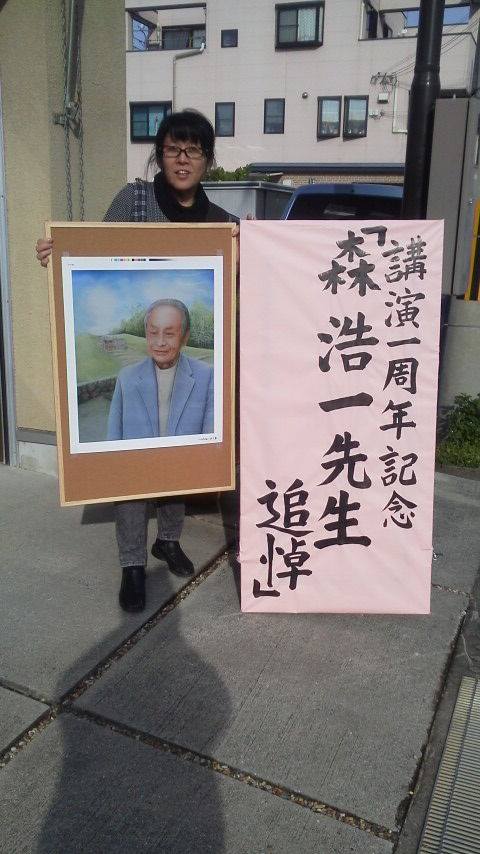 講演一周年記念
「森浩一先生
追悼」